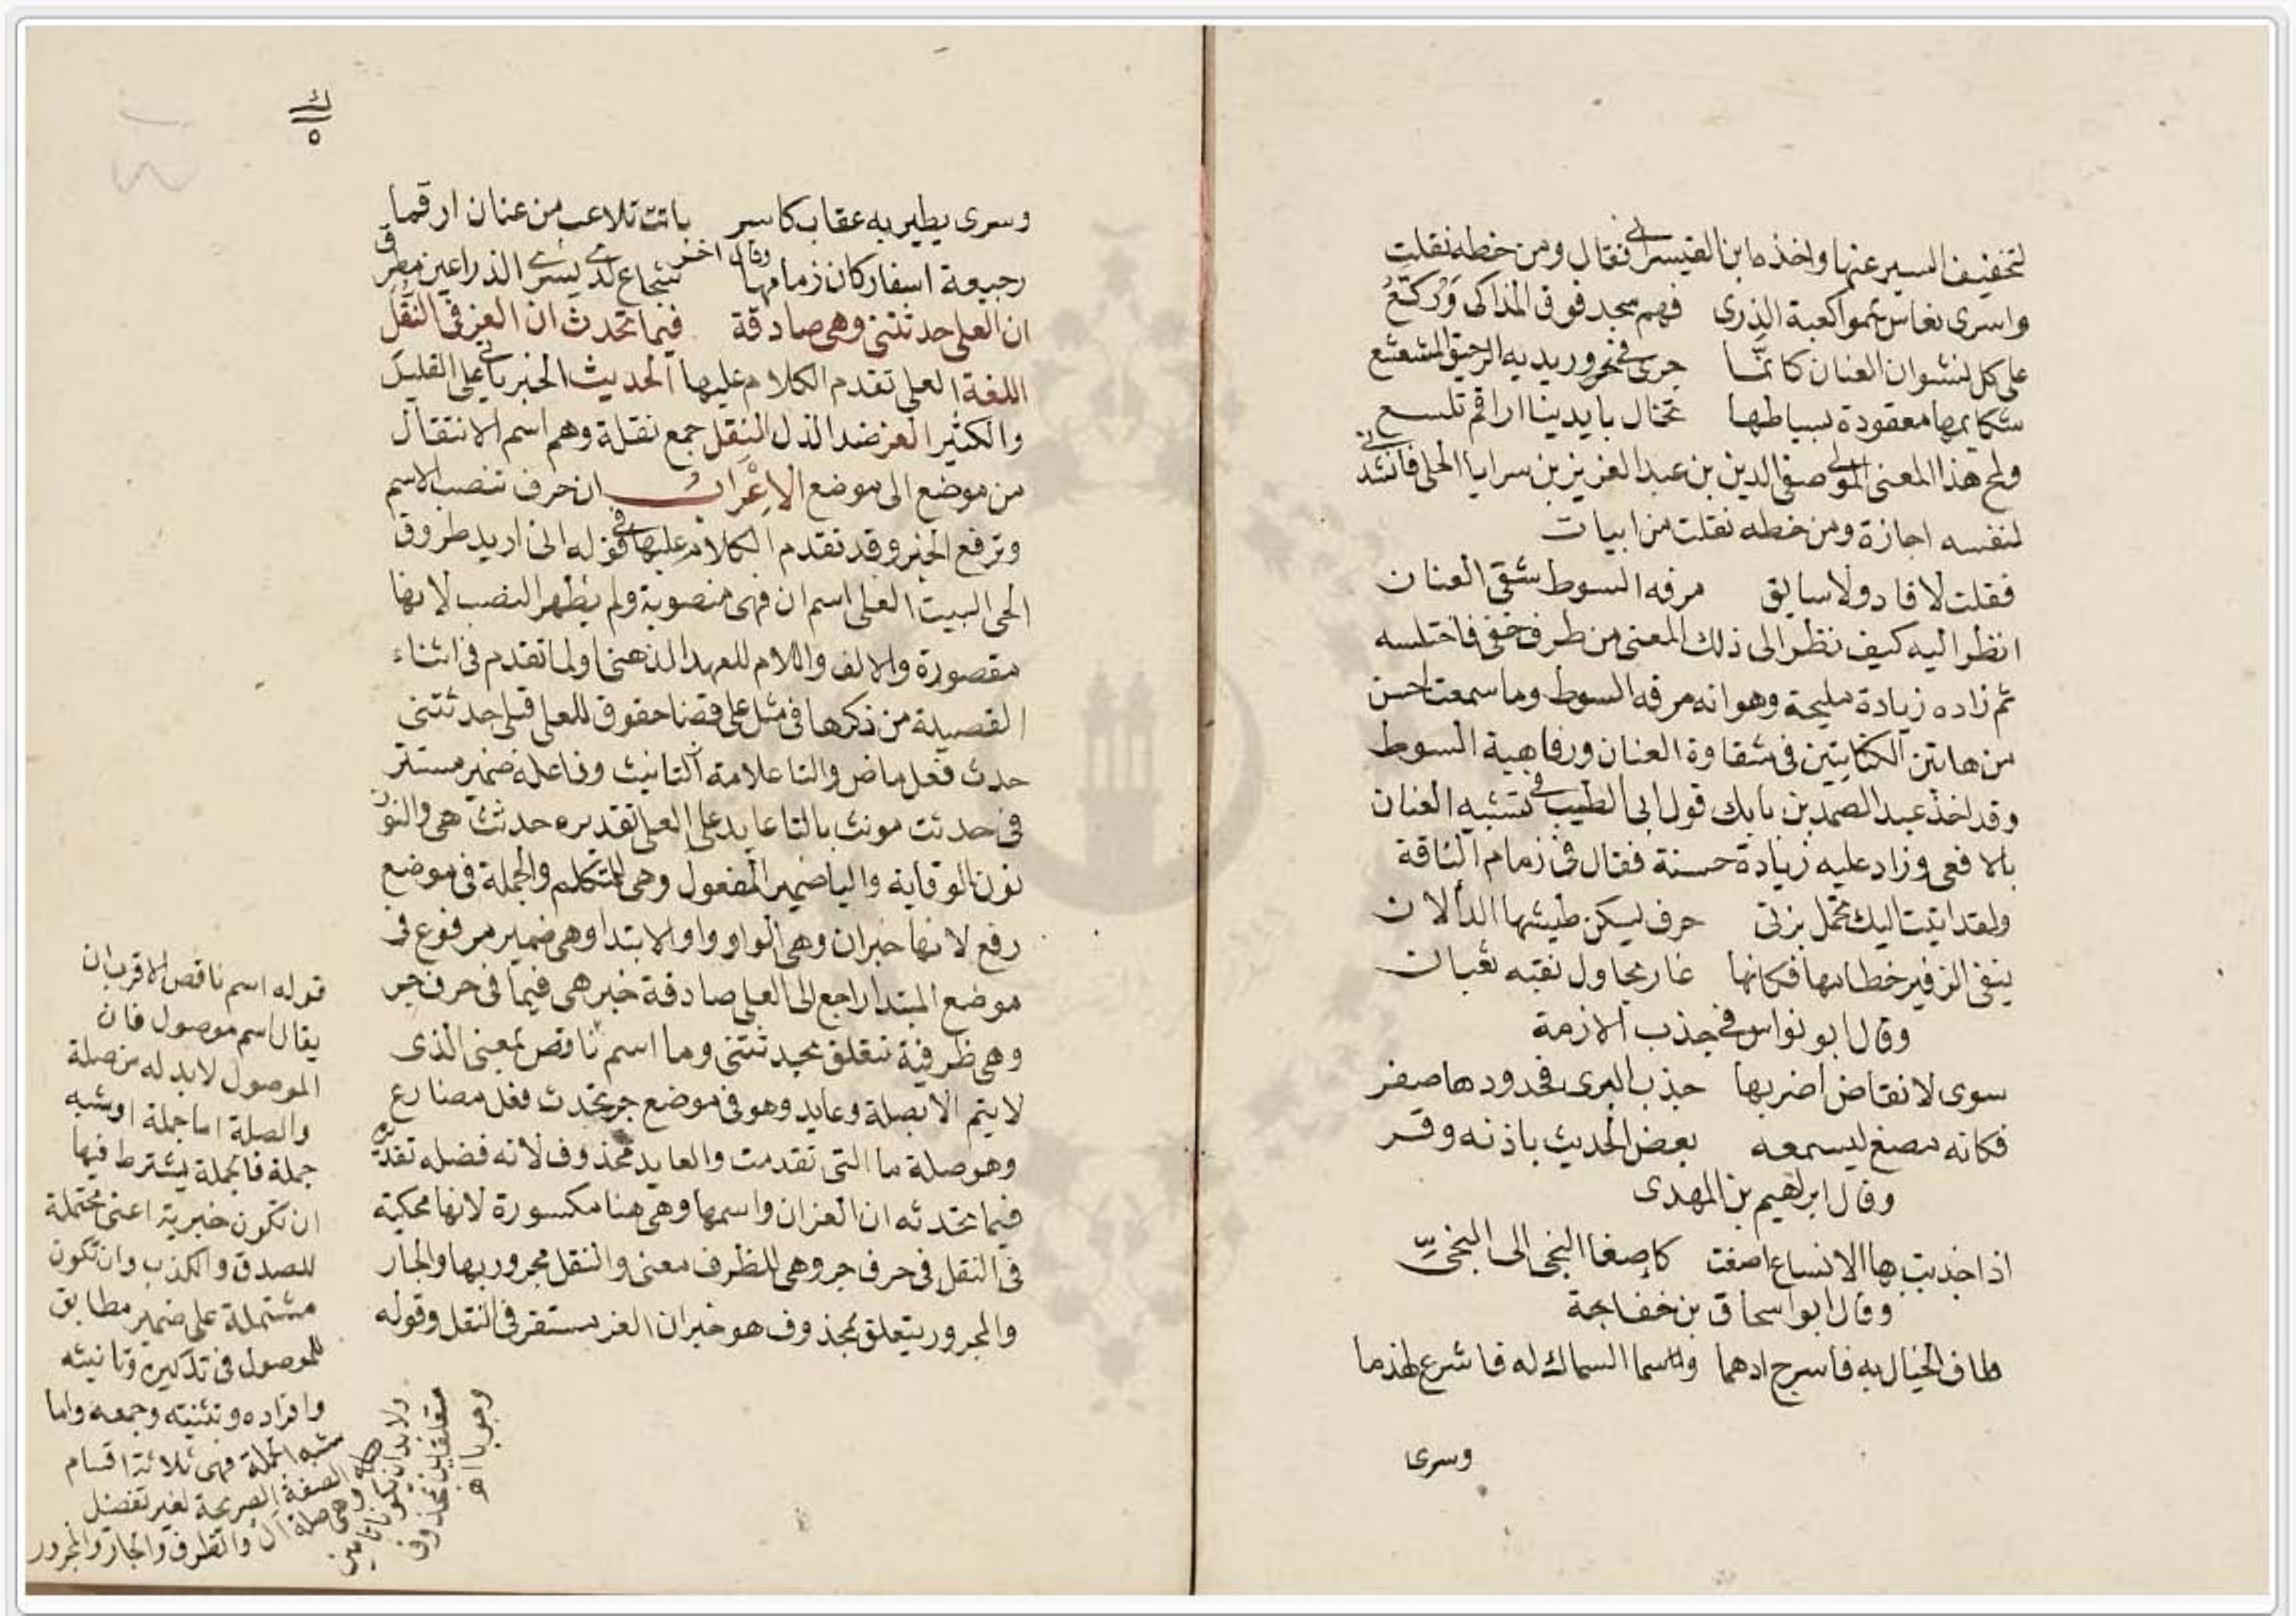 لتخفيف السير عنها واخذه ابن القيسراني فقال ومن خطه نقلت
واسرى نعاس يمموا كعبة الذرى فهم سجد فوق المذاكى وركع
على كل نشوان العنان كانما جرى في وريديه الرحيق المشعشع
شكايمها معقودة بسياطها تخال بايدينا اراقم تلسع
ولمح هذا المعنى المولى صفى الدين بن عبد العزيز بن سرايا الحلى فانشدنى
لنفسه اجازة ومن خطه نقلت من ابيات
فقلت لا قاد ولا سايق مرفه السوط شقى العنان
انظر اليه كيف نظر الى ذلك المعنى من طرف خفى فاختلسه
ثم زاده زيادة مليحة وهو انه مرفه السوط وما سمعت احسن
من هاتين الكنايتين في شقاوة العنان ورفاهية السوط
وقد اخذ عبد الصمد بن بابك قول ابى الطيب في تشبيه العنان
بالافعى وزاد عليه زيادة حسنة فقال في زمام الناقة
ولقد اتيت اليك تحمل بزتى حرف يسكن طيشها الدألان
ينفى الزفير خطامها فكانها غار يحاول نقبه ثعبان
وقال ابو نواس في جذب الازمة
سوى لانقاض اضر بها جذب البرى فخدودها صفر
فكانه مصغ ليسمعه بعض الحديث باذنه وقر
وقال ابرهيم بن المهدى
اذا جذبت بها الانساع اصغت كاصغا النجى الى النجىّ
وقال ابو اسحاق بن خفاجة
طاف الخيال به فاسرج ادهما وسما السماك له فاشرع لهذما
وسرى
وسرى يطير به عقاب كاسر باتت تلاعب من عنان ارقما
وقال اخر
رجيعة اسفار كان زمامها شجاع لدى يسرى الذراعين مطرق
ان العلى حدثتنى وهى صادقة فيما تحدث ان العز في النقل
اللغة العلى تقدم الكلام عليها الحديث الخبر ياتى على القليل
والكثير العز ضد الذل النقل جمع نقلة وهم اسم الانتقال
من موضع الى موضع الاعراب ان حرف تنصب الاسم
وترفع الخبر وقد تقدم الكلام عليها في قوله انى اريد طروق
الحى البيت العلى اسم ان فهى منصوبة ولم يظهر النصب لانها
مقصورة والالف واللام للعهد الذهنى او لما تقدم في اثناء
القصيدة من ذكرها في مثل على قضا حقوق للعلى قبلى حدثتنى
حدث فعل ماض والتا علامة التانيث وفاعله ضمير مستتر
في حدثت مونث بالتا عايد على العلى تقديره حدثت هى والنون
نون الوقاية واليا ضمير المفعول وهى للمتكلم والجملة في موضع
رفع لانها خبر ان وهى الواو واو الابتدا وهى ضمير مرفوع في
موضع المبتدا راجع الى العلى صادقة خبر هى فيما في حرف جر
وهى ظرفية تتعلق بحدثتنى وما اسم ناقص بمعنى الذى
لا يتم الا بصلة وعايد وهو في موضع جر تحدث فعل مضارع
وهو صلة ما التى تقدمت والعايد محذوف لانه فضله تقديره
فيما تحدثه ان العز ان واسمها وهى هنا مكسورة لانها محكية
في النقل في حرف جر وهى للظرف معنى والنقل مجرور بها والجار
والمجرور يتعلق بمحذوف هو خبر ان العز مستقر في النقل وقوله
قوله اسم ناقص الاقرب ان
يقال اسم موصول فان
الموصول لابد له من صلة
والصلة اما جملة او شبه
جملة فالجملة يشترط فيها
ان تكون خبرية اعنى محتملة
للصدق والكذب وان تكون
مشتملة على ضمير مطابق
للموصول في تذكيره وتانيثه
وافراده وتثنيته وجمعه واما
شبه الجملة فهى ثلاثة اقسام
الصفة الصريحة لغير تفضيل
وهى صلة ال والظرف والجار والمجرور
ولابد ان يكونا تامين
متعلقين بمحذوف
وجوبا اه